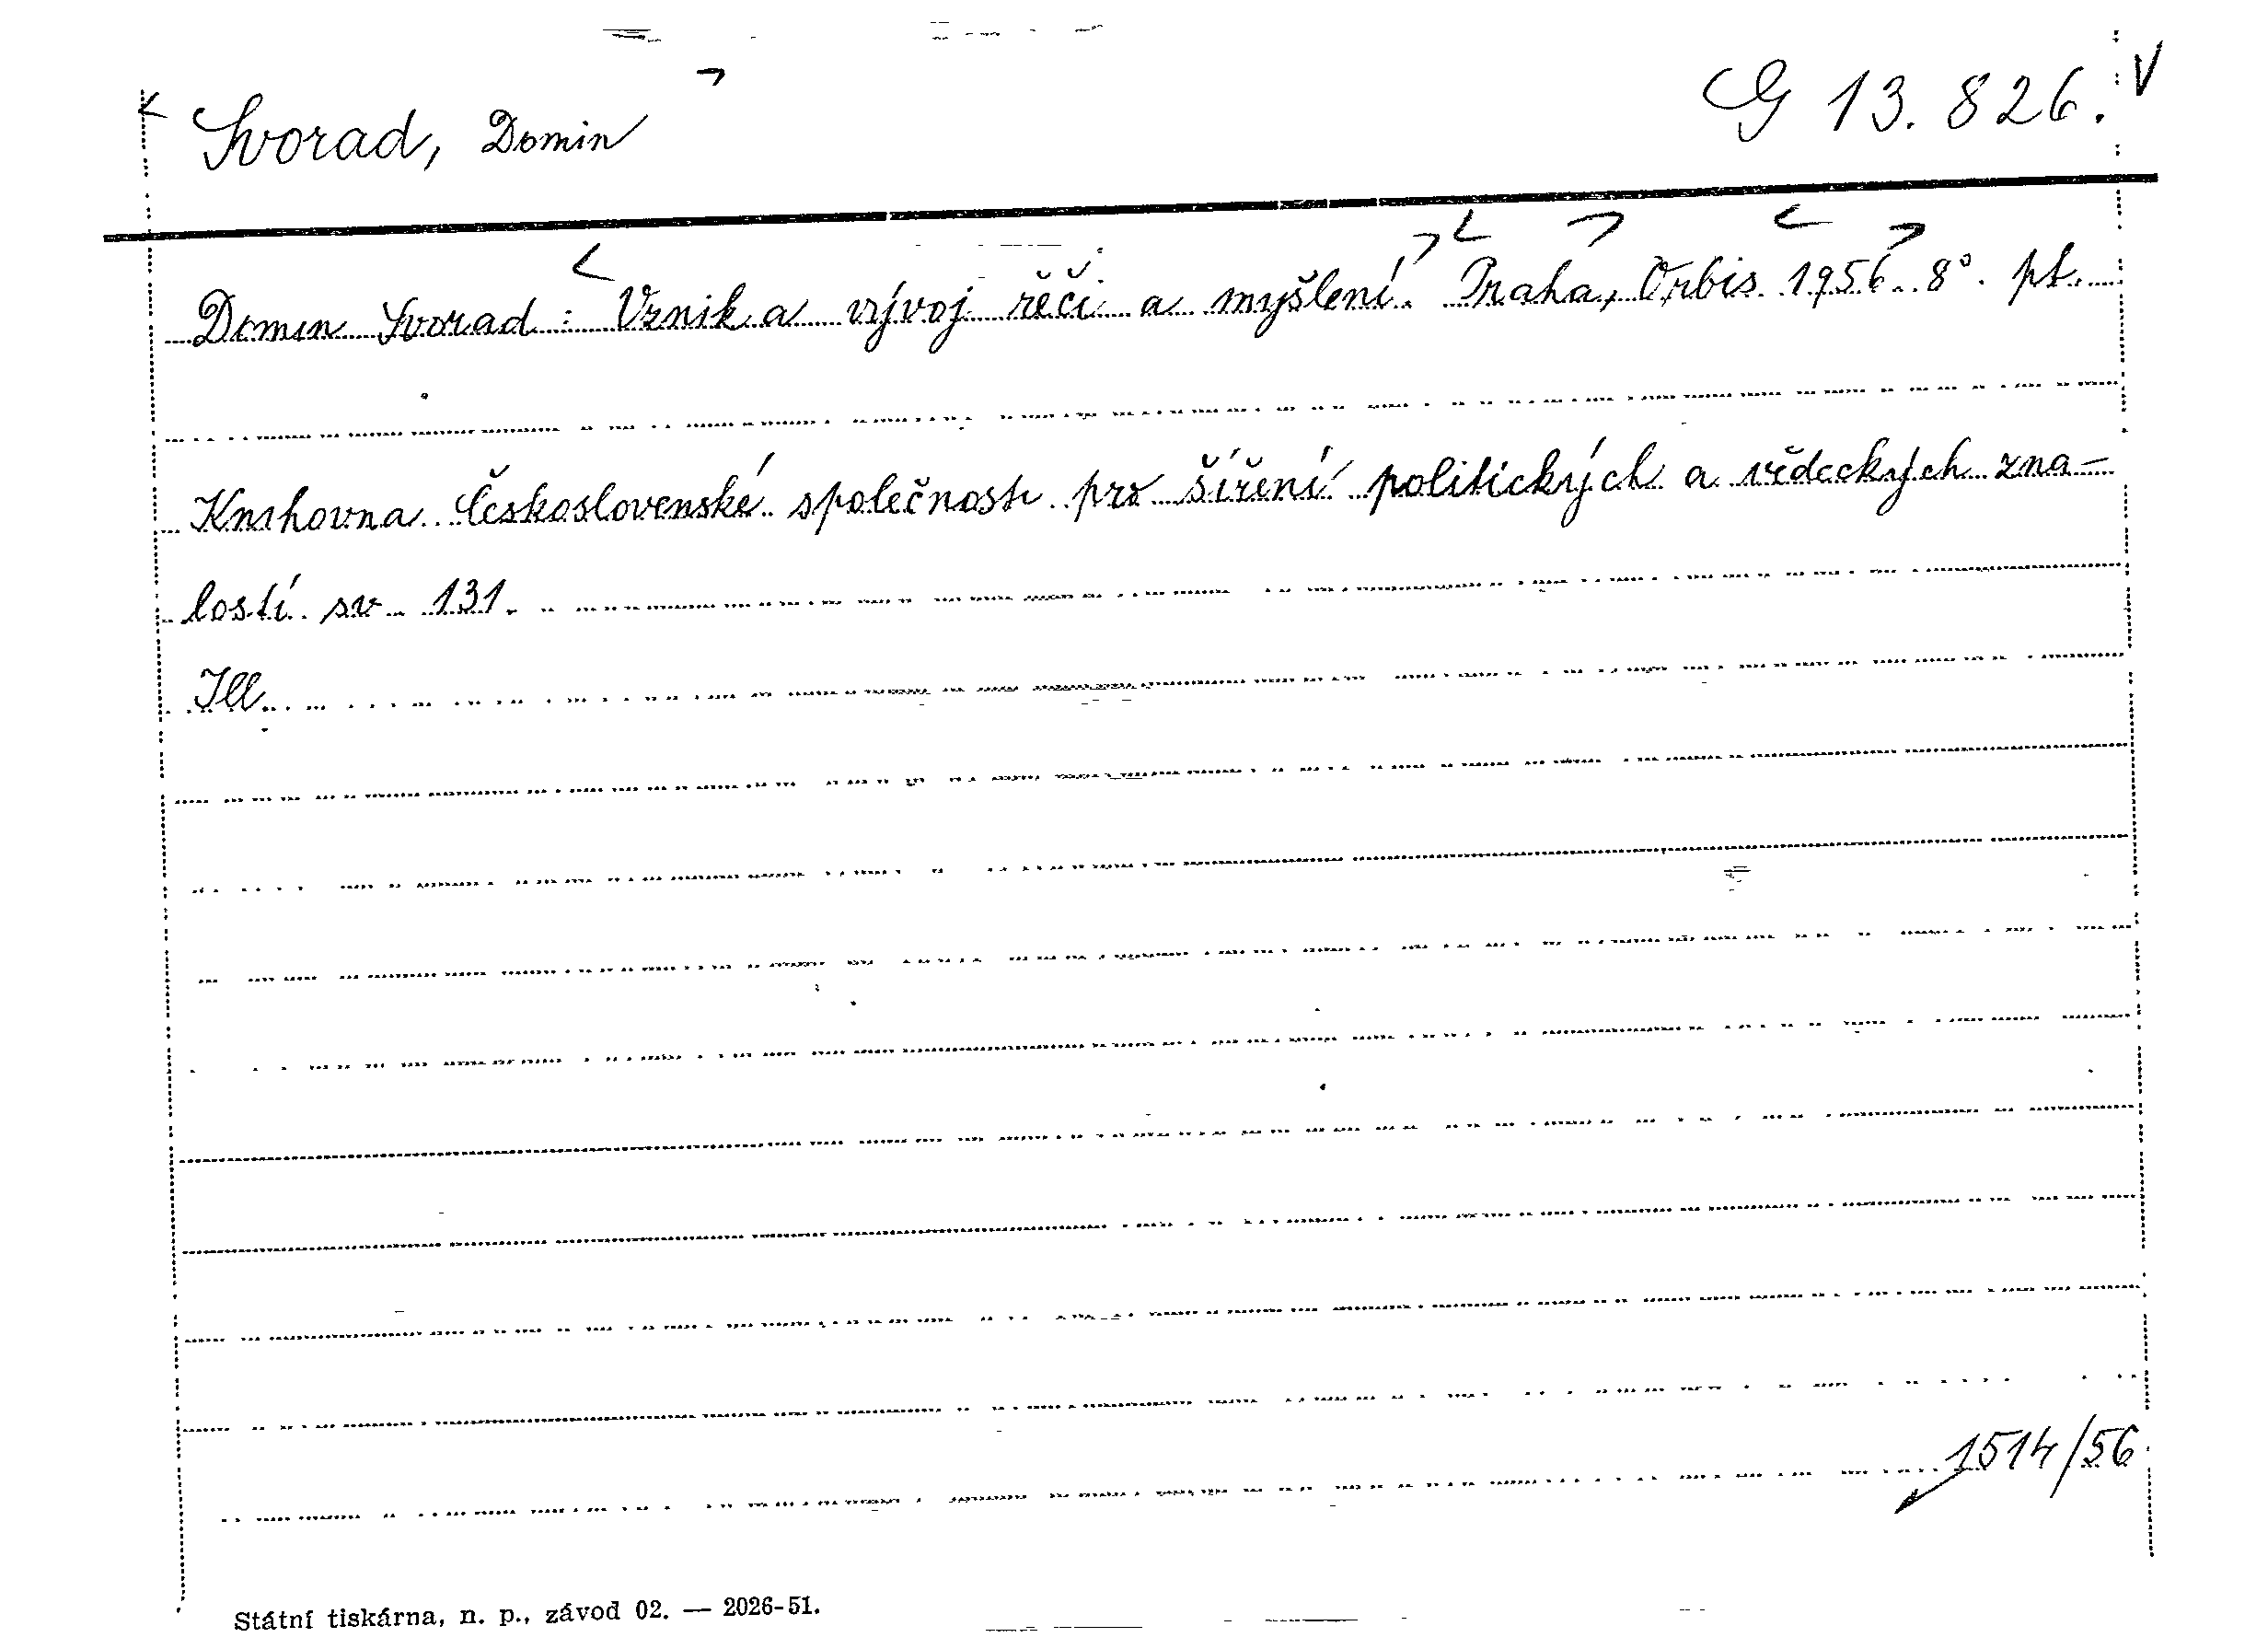 Svorad, Domin G 13.826.
Domin Svorad: Vznik a vývoj řeči a myšlení. Praha, Orbis 1956. 8°. pt.
Knihovna Československé společnosti pro šíření politických a vědeckých zna-
lostí sv. 131.
Ill.
1514/56
Státní tiskárna, n. p., závod 02. — 2026-51.